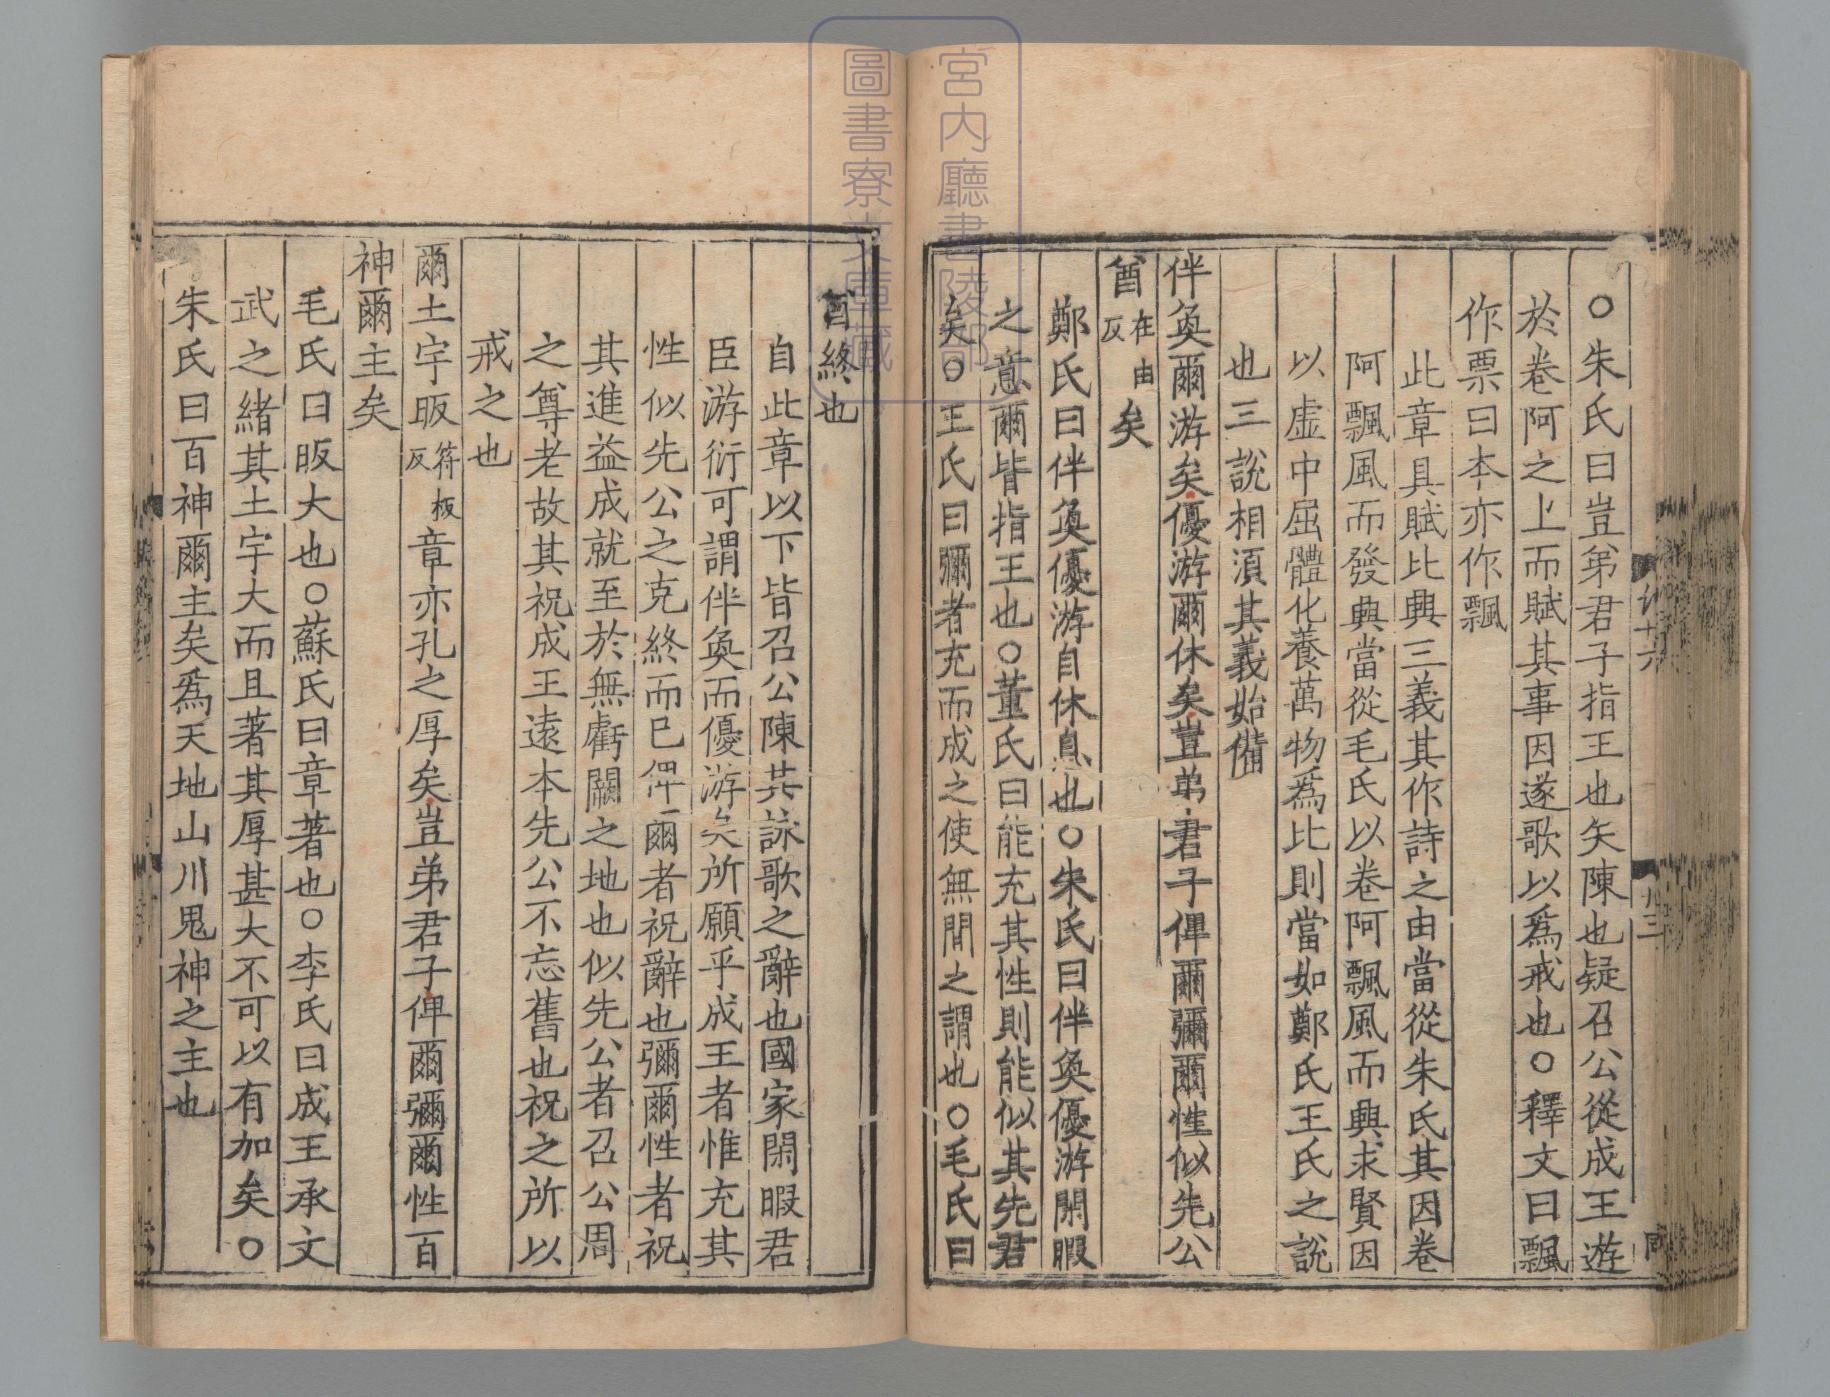 ○朱氏曰豈弟君子指王也矢陳也疑召公從成王遊
於卷阿之上而賦其事因遂歌以爲戒也○釋文曰飄
作票曰本亦作飄
此章具賦比興三義其作詩之由當從朱氏其因卷
阿飄風而發興當從毛氏以卷阿飄風而興求賢因
以虛中屈體化養萬物爲比則當如鄭氏王氏之說
也三說相須其義始備
伴奐爾游矣優游爾休矣豈弟君子俾爾彌爾性似先公
酋在由反矣
鄭氏曰伴奐優游自休息也○朱氏曰伴奐優游閑暇
之意爾皆指王也○董氏曰能充其性則能似其先君
矣○王氏曰彌者充而成之使無間之謂也○毛氏曰
酋終也
自此章以下皆召公陳其詠歌之辭也國家閑暇君
臣游衍可謂伴奐而優游矣所願乎成王者惟充其
性似先公之克終而已俾爾者祝辭也彌爾性者祝
其進益成就至於無虧闕之地也似先公者召公周
之尊老故其祝成王遠本先公不忘舊也祝之所以
戒之也
爾土宇昄符板反章亦孔之厚矣豈弟君子俾爾彌爾性百
神爾主矣
毛氏曰昄大也○蘇氏曰章著也○李氏曰成王承文
武之緒其土宇大而且著其厚甚大不可以有加矣○
朱氏曰百神爾主矣爲天地山川鬼神之主也
宮内廳書陵部
圖書寮文庫藏